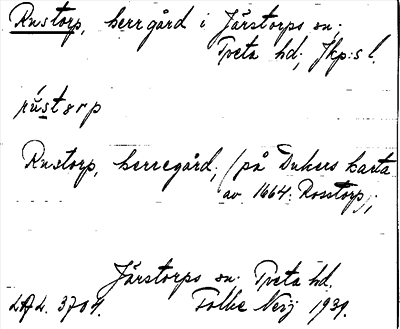 Rustorp, herrgård i Järstorps sn;
Tveta hd; Jkp:s l.
rús̱tərp
Rustorp, herregård; (på Dukers karta
av 1664: Rosstorp);
Järstorps sn. Tveta hd.
LAL. 3701. Folke Neij 1931.